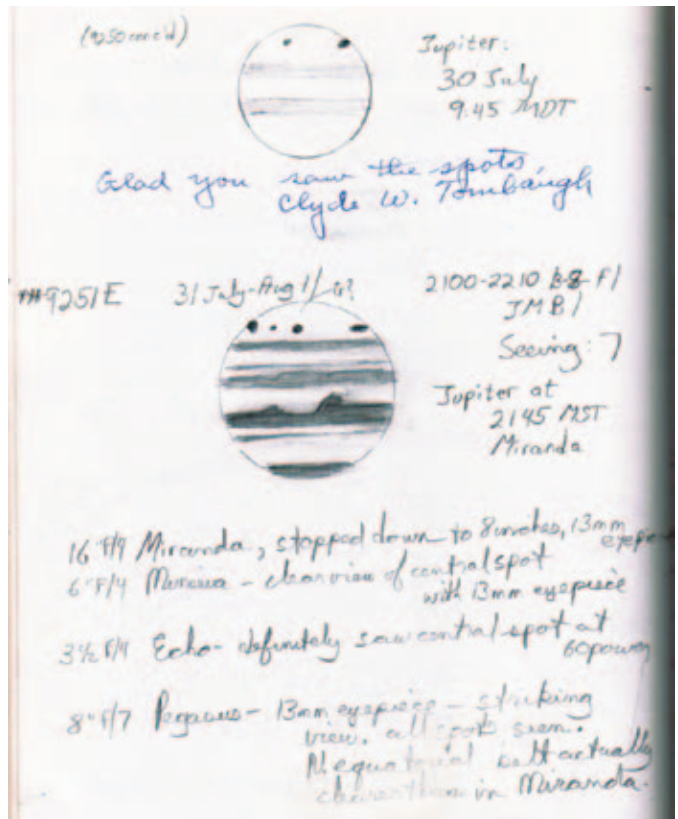 (9250 cont'd)
Jupiter:
30 July
9:45 MDT
Glad you saw the spots
Clyde W. Tombaugh
9251E
31 July-Aug 1/
2100-2210
JMB/
Seeing: 7
Jupiter at
2145 MST
Miranda
16" f/9 Miranda, stopped down to 8 inches, 13mm
6" F/4 - clear view of central spot
with 13mm eyepiece
3½ f/4 Echo - definitely saw central spot at
60 power
8" f/7 Pegasus - 13mm eyepiece - striking
view. all spots seen.
N equatorial belt actually
clearer than in Miranda.